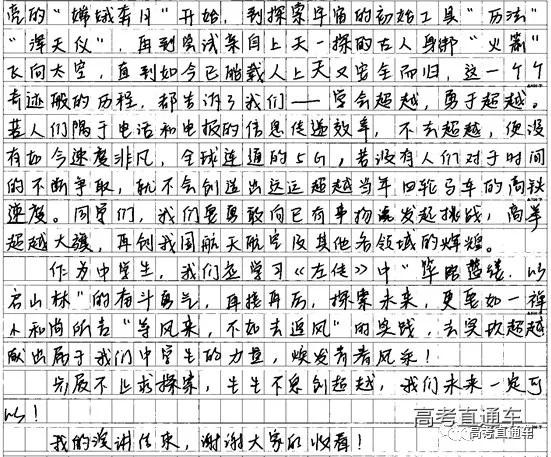 亮的“嫦娥奔月”开始，到探索宇宙的初始工具“历法”
“浑天仪”，再到尝试亲自上天一探的古人身绑“火箭”
飞向太空，直到如今已能载人上天又安全而归，这一个个
奇迹般的历程，都告诉了我们——学会超越，勇于超越。
若人们隅于电话和电报的信息传递效率，不去超越，便没
有如今速度非凡，全球连通的5G，若没有人们对于时间
的不断争取，就不会创造出远远超越当年四轮马车的高铁
速度。同学们，我们要勇敢向已有事物发起挑战，高举
超越大旗，再创我国航天航空及其他各领域的辉煌。
作为中学生，我们应学习《左传》中“筚路蓝缕，以
启山林”的奋斗勇气，再接再厉，探索未来，更要如一禅
小和尚所言“等风来，不如去追风”的实践，去实现超越
献出属于我们中学生的力量，焕发青春风采！
步履不止求探索，生生不息创超越，我们未来一定可
以！
我的演讲结束，谢谢大家的收看！
高考直通车
高考直通车